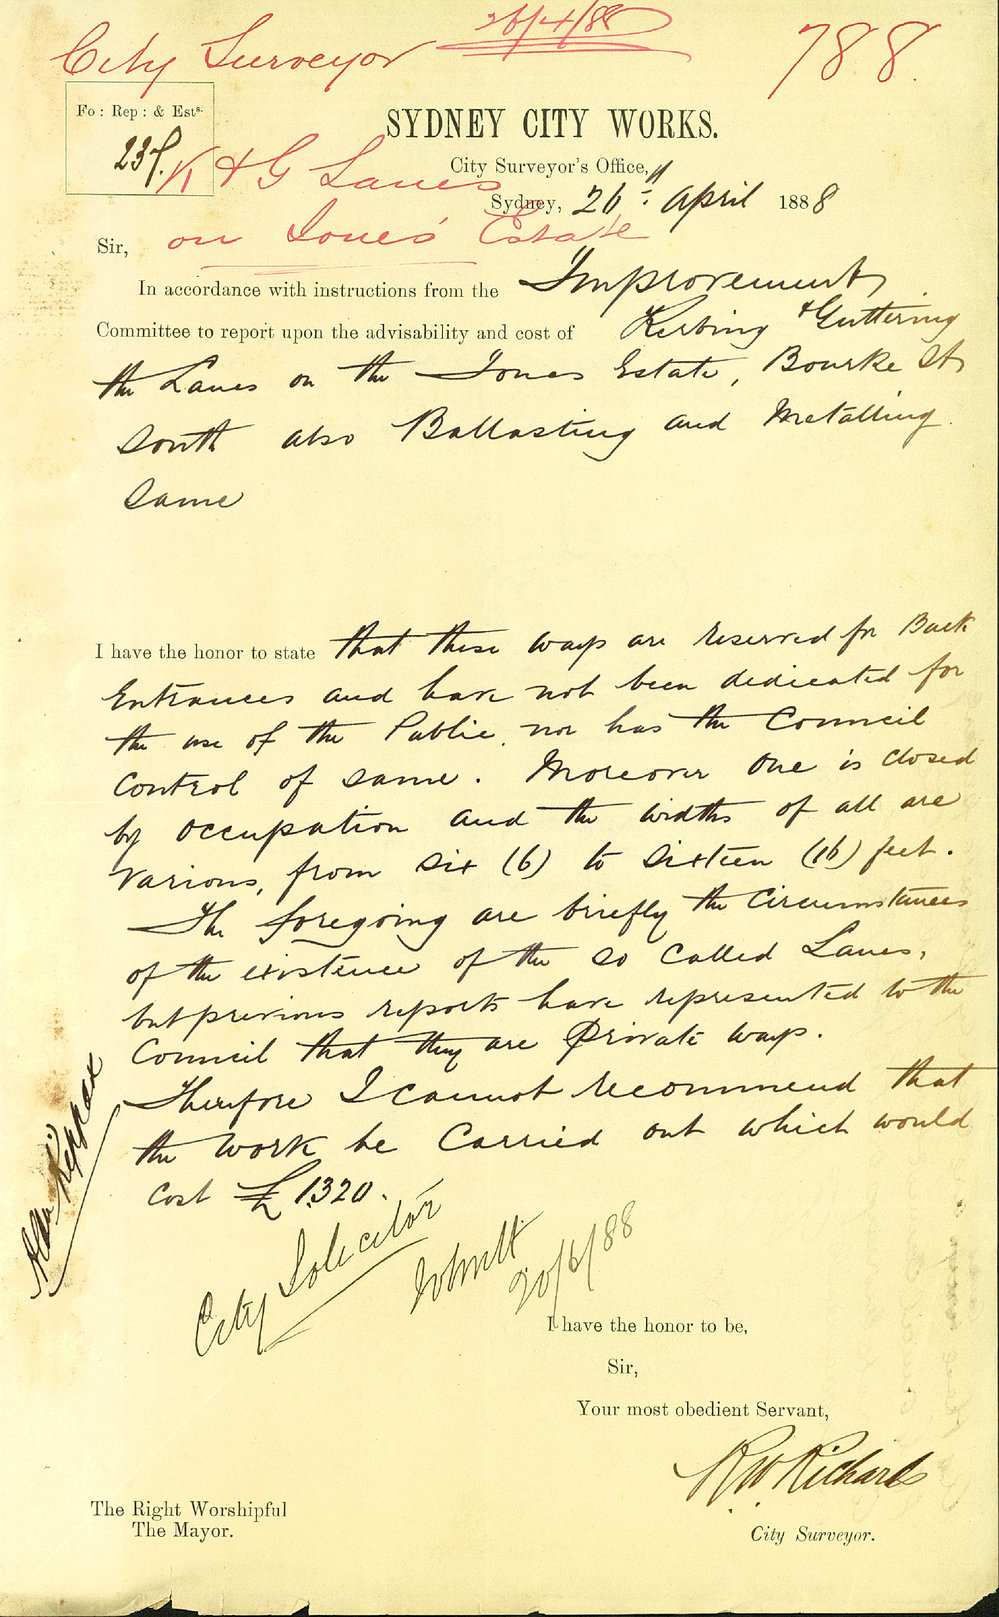 City Surveyor 26/4/88 788.
Fo: Rep: & Ests.
237.
SYDNEY CITY WORKS.
K & G Lanes
City Surveyor's Office,
Sydney, 26th April 1888
on Jones' Estate
Sir,
In accordance with instructions from the Improvement
Committee to report upon the advisability and cost of Kerbing & Guttering
the Lanes on the Jones Estate, Bourke St
South also Ballasting and Metalling
Same
I have the honor to state that these ways are reserved for Back
Entrances and have not been dedicated for
the use of the Public, nor has the Council
control of same. Moreover one is closed
by occupation and the widths of all are
various, from six (6) to sixteen (16) feet.
The foregoing are briefly the circumstances
of the existence of the so called Lanes,
but previous reports have represented to the
Council that they are Private ways.
Therefore I cannot recommend that
the work be carried out which would
cost £1320.
City Solicitor
20/6/88
I have the honor to be,
Sir,
Your most obedient Servant,
RW Richards
City Surveyor.
The Right Worshipful
The Mayor.